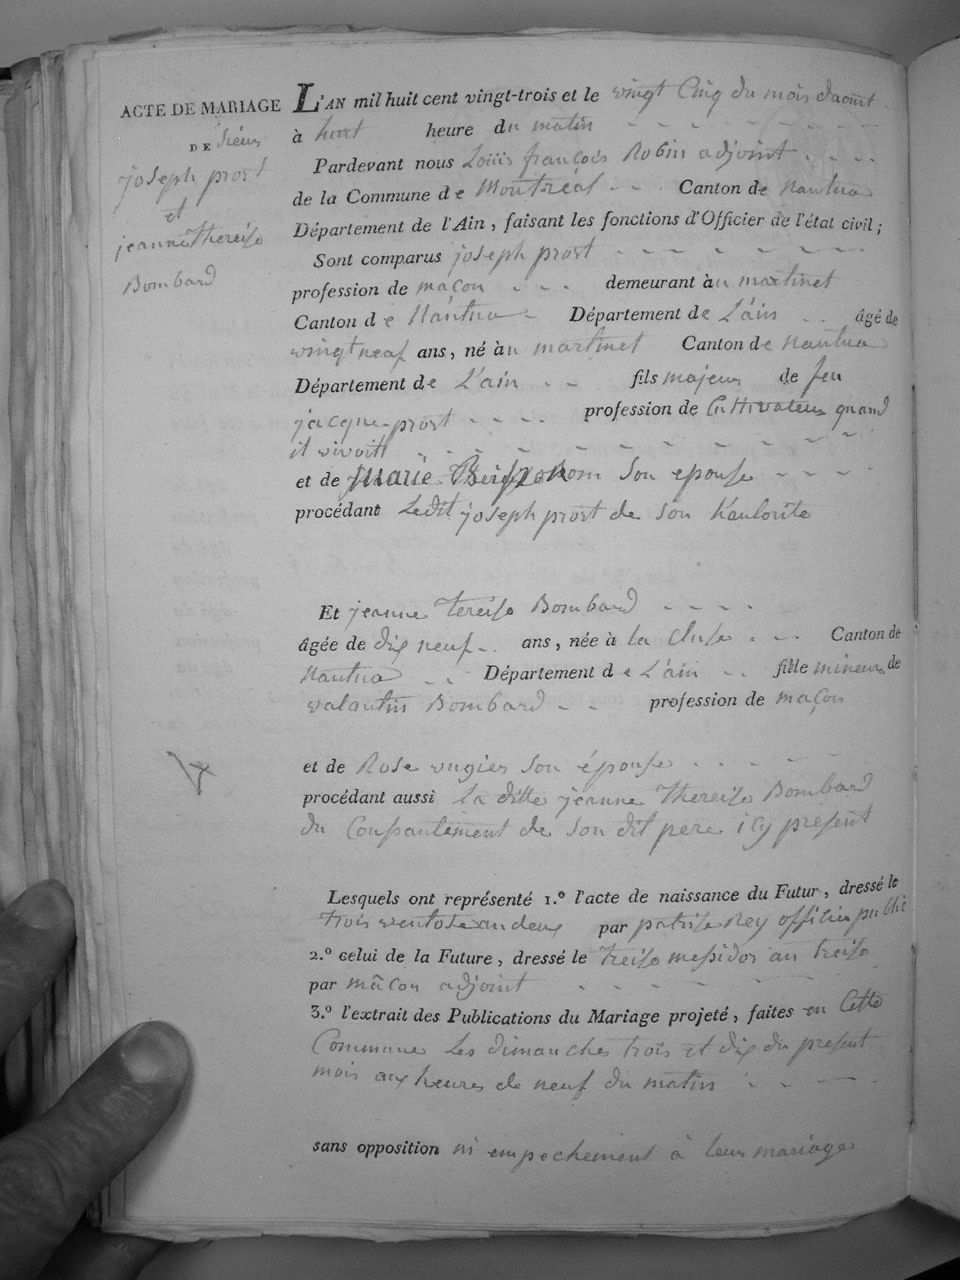 ACTE DE MARIAGE
DE Sieur
joseph prost
et
jeanne Thereise
Bombard
L'AN mil huit cent vingt-trois et le vingt Cinq du mois daoust
à huit heure du matin
Pardevant nous Louis françois Robin adjoint
de la Commune de Montréal Canton de Nantua
Département de l'Ain, faisant les fonctions d'Officier de l'état civil;
Sont comparus joseph prost
profession de maçon demeurant àu martinet
Canton de Nantua Département de L'ain âgé de
vingt neuf ans, né àu martinet Canton de Nantua
Département de L'ain fils majeur de feu
jacque prost profession de Cultivateur quand
il vivoit
et de Marie son epouse
procédant Ledit joseph prost de son
Et jeanne Tereise Bombard
âgée de dix neuf ans, née à la Cluse Canton de
Nantua Département de L'ain fille mineure de
valantin Bombard profession de maçon
et de Rose vugier son épouse
procédant aussi La ditte jeanne Thereise Bombard
du Consantement de son dit pere icy present
Lesquels ont représenté 1.º l'acte de naissance du Futur, dressé le
trois ventose an deux par Rey officier public
2.º celui de la Future, dressé le treise messidor an treise
par mâcon adjoint
3.º l'extrait des Publications du Mariage projeté, faites en Cette
Commune Les dimanches trois et dix du present
mois aux heures de neuf du matin
sans opposition ni empechement à leur mariage